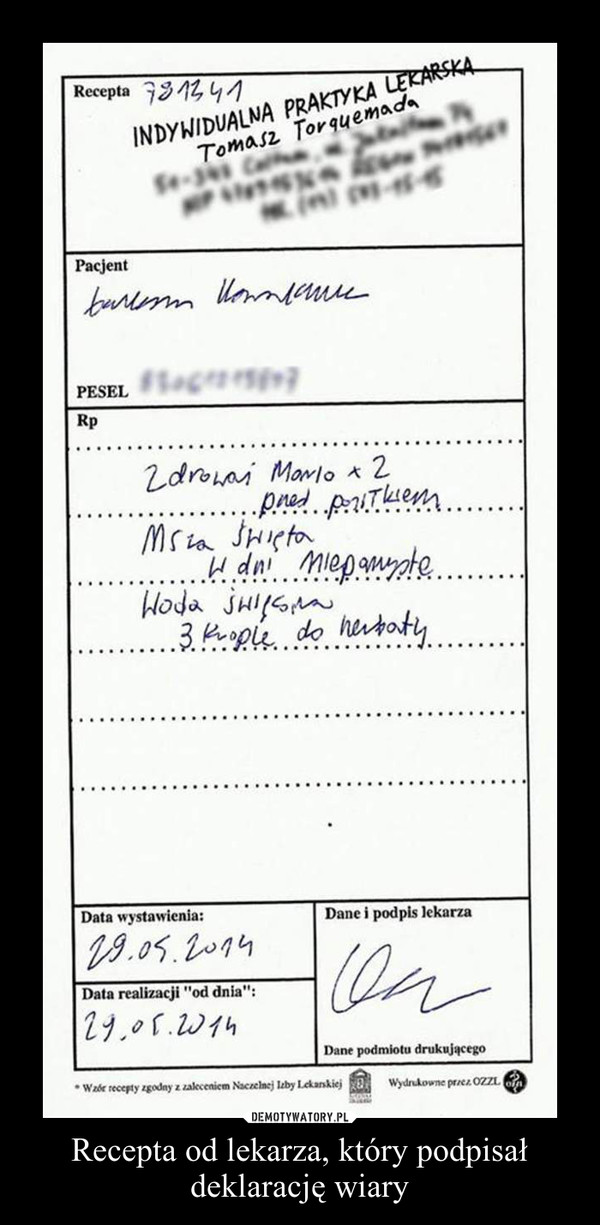 Recepta 781341
INDYWIDUALNA PRAKTYKA LEKARSKA
Tomasz Torquemada
Pacjent
PESEL
Rp
Zdrowaś Mario x 2
przed positkiem
Msza Święta
w dni nieparzyste
Woda święcona
3 krople do herbaty
Data wystawienia:
29.05.2014
Dane i podpis lekarza
Data realizacji "od dnia":
29.05.2014
Dane podmiotu drukującego
* Wzór recepty zgodny z zaleceniem Naczelnej Izby Lekarskiej
Wydrukowne przez OZZL
DEMOTYWATORY.PL
Recepta od lekarza, który podpisał
deklarację wiary